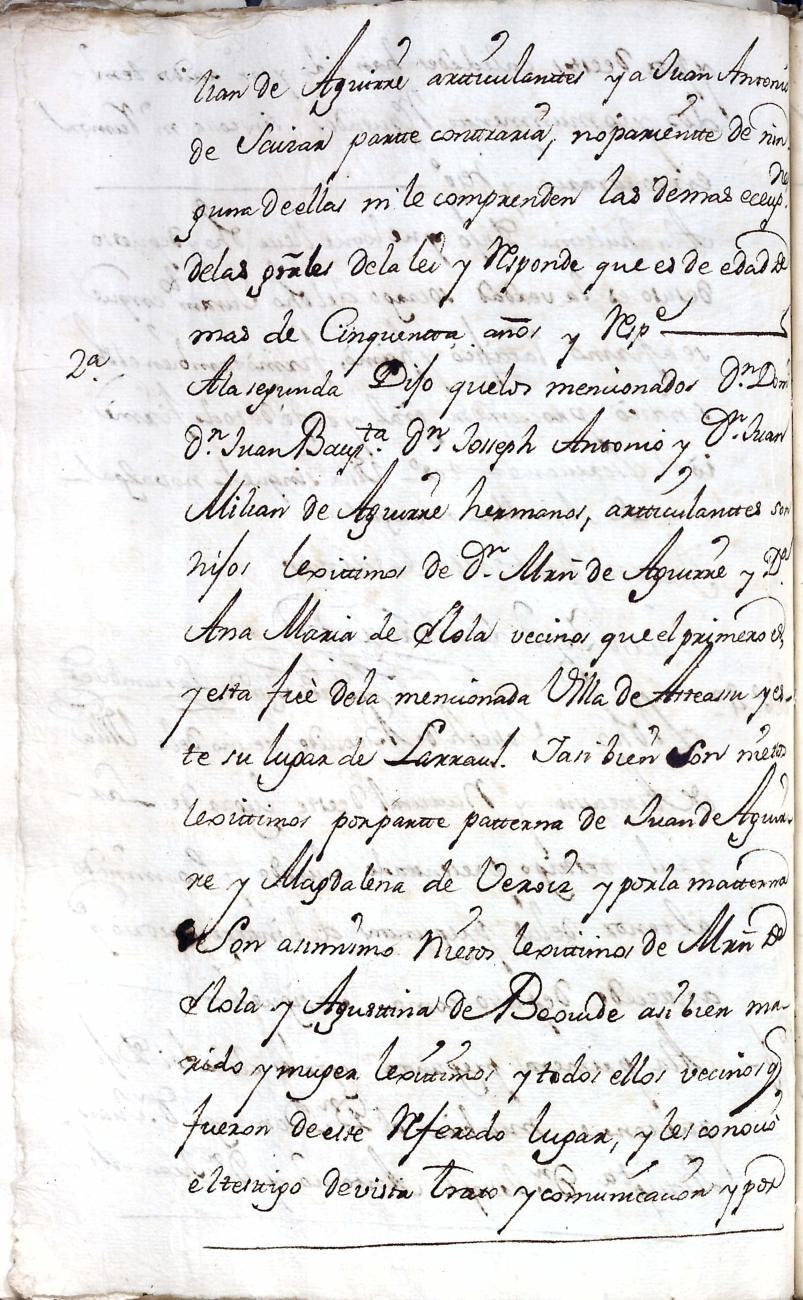 lian de Aguirre artticulanttes y a Juan Antonio
de Scuiar partte conttraria, no parientte de nin
guna de ellas ni le comprenden las demas ecepnes
delas grales dela lei y Responde que es de edad de
mas de Cinquentta años y Respe
2a. Ala segunda Dijo quelos mencionados Dn. Domo
Dn. Juan Baupta. Dn. Josseph Antonio y Dn. Juan
Milian de Aguirre hermanos, artticulanttes son
hijos lexittimos de Dn. Mrn de Aguirre y Da.
Ana Maria de Olola vecinos que el primero es,
y esta fuè dela mencionada Villa de Asteasu y es-
te su lugar de Larraul. Jasi bien son nietos
lexittimos por partte patterna de Juan de Aguir-
re y Magdalena de Veroiz y por la matterna
Son asimismo Nietos lexittimos de Mrn de
Olola y Agusttina de Beovide asi bien ma-
rido y muger lexittimos y todos ellos vecinos q
fueron de este Referido lugar, y les conociò
el testigo de vista trato y comunicacion y por